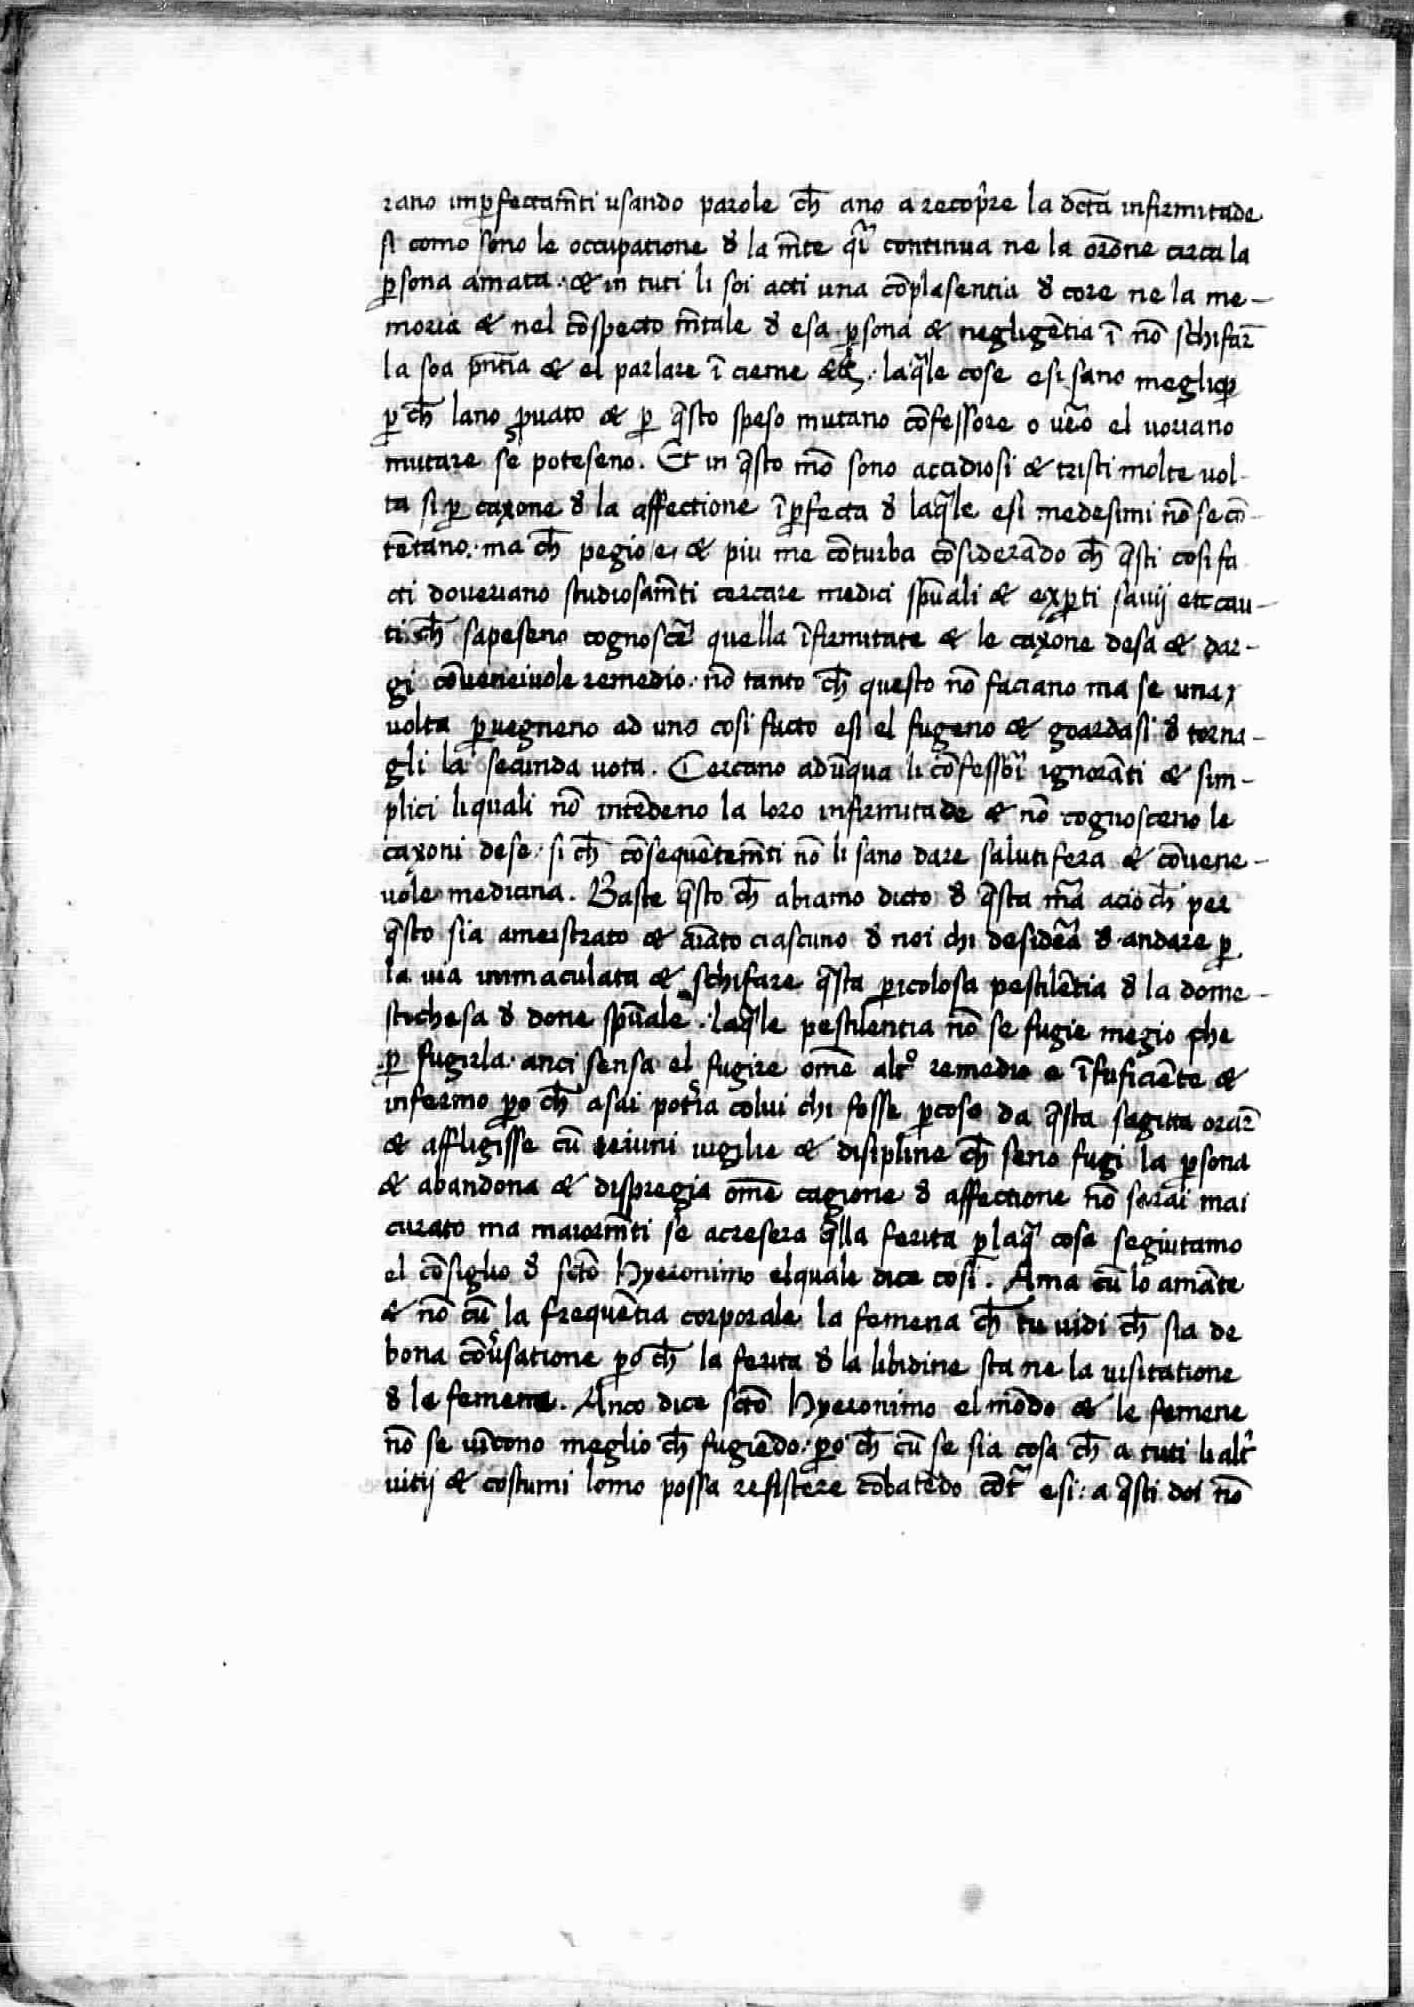 rano imꝑfectam̄ti usando parole ch̄ ano a recop̄re la dc̄ta infirmitade
si como sono le occupatione d̄ la m̄te q̄i continua ne la ord̄ne circa la
ꝑsona amata · & in tuti li soi acti una cōplasentia d̄ core ne la me-
moria & nel cōspecto m̄tale d̄ esa ꝑsona & negligētia ī nō schifar̄
la soa p̄ntia & el parlare ī cieme &c̄ · laq̄le cose esi sano meglio
ꝑ ch̄ lano ꝓuato & ꝑ q̄sto speso mutano cōfessore o uēo el uoriano
mutare sē poteseno . Et in q̄sto mō sono accidiosi & tristi molte uol-
ta si ꝑ caxone d̄ la affectione īꝑfecta d̄ laq̄le esi medesimi nō se cō-
tētano · ma ch̄ pegio e · & piu me cōturba cōsiderādo ch̄ q̄sti cosi fa
cti doueriano studiosam̄ti cercare medici sp̄uali & exꝑti sauij et cau-
ti ch̄ sapeseno cognosc̄e quella īfirmitate & le caxone desa & dar-
gi cōueneiuole remedio · nō tanto ch̄ questo nō faciano ma se una
uolta ꝑuegneno ad uno cosi facto esi el fugeno & goardasi d̄ torna-
gli la secunda uota . Cercano adūqua li cōfessōi ignorāti & sim-
plici li quali nō intēdeno la loro infirmitade & nō cognosceno le
caxoni dese · si ch̄ cōsequētem̄ti nō li sano dare salutifera & cōuene-
uole medicina . Baste q̄sto ch̄ abiamo dicto d̄ q̄sta m̄a acio ch̄ per
q̄sto sia ameistrato & aīato ciascuno d̄ noi chi desidēa d̄ andare ꝑ
la uia immaculata & schifare q̄sta ꝑicolosa pestilētia d̄ la dome-
stichesa d̄ done sp̄uale · laq̄le pestilentia nō se fugie megio che
ꝑ fugirla · anci sensa el fugire omē alt̊ remedio e īsuficiēte &
infermo ꝑo ch̄ asai pot̄ia colui chi fosse ꝑcoso da q̄sta sagitta orar̄
& affligisse cū ieiuni uigilie & disipline ch̄ seno fugi la ꝑsona
& abandona & dispregia omē cagione d̄ affectione nō serai mai
curato ma maiorm̄ti se acresera q̄lla ferita ꝑ laq̄ cosa seguitamo
el cōsiglio d̄ sc̄to Hyeronimo elquale dice cosi . Ama cū lo amāte
& nō cū la frequētia corporale la femena ch̄ tu uidi ch̄ sia de
bona cōu̓satione ꝑo ch̄ la ferita d̄ la libidine sta ne la uisitatione
d̄ le femene . Anco dice sc̄to Hyeronimo el mōdo & le femene
nō se uīcono meglio ch̄ fugiēdo · ꝑo ch̄ cū se sia cosa ch̄ a tuti li alt̄
uitij & costumi lomo possa resistere cōbatēdo cōt̄ esi : a q̄sti doi nō